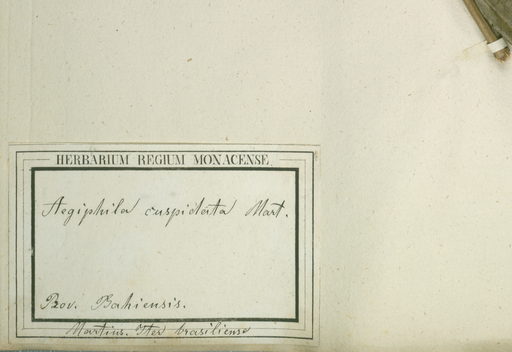 HERBARIUM REGIUM MONACENSE.
Aegiphila cuspidata Mart.
Prov. Bahiensis.
Martius. Iter brasiliense